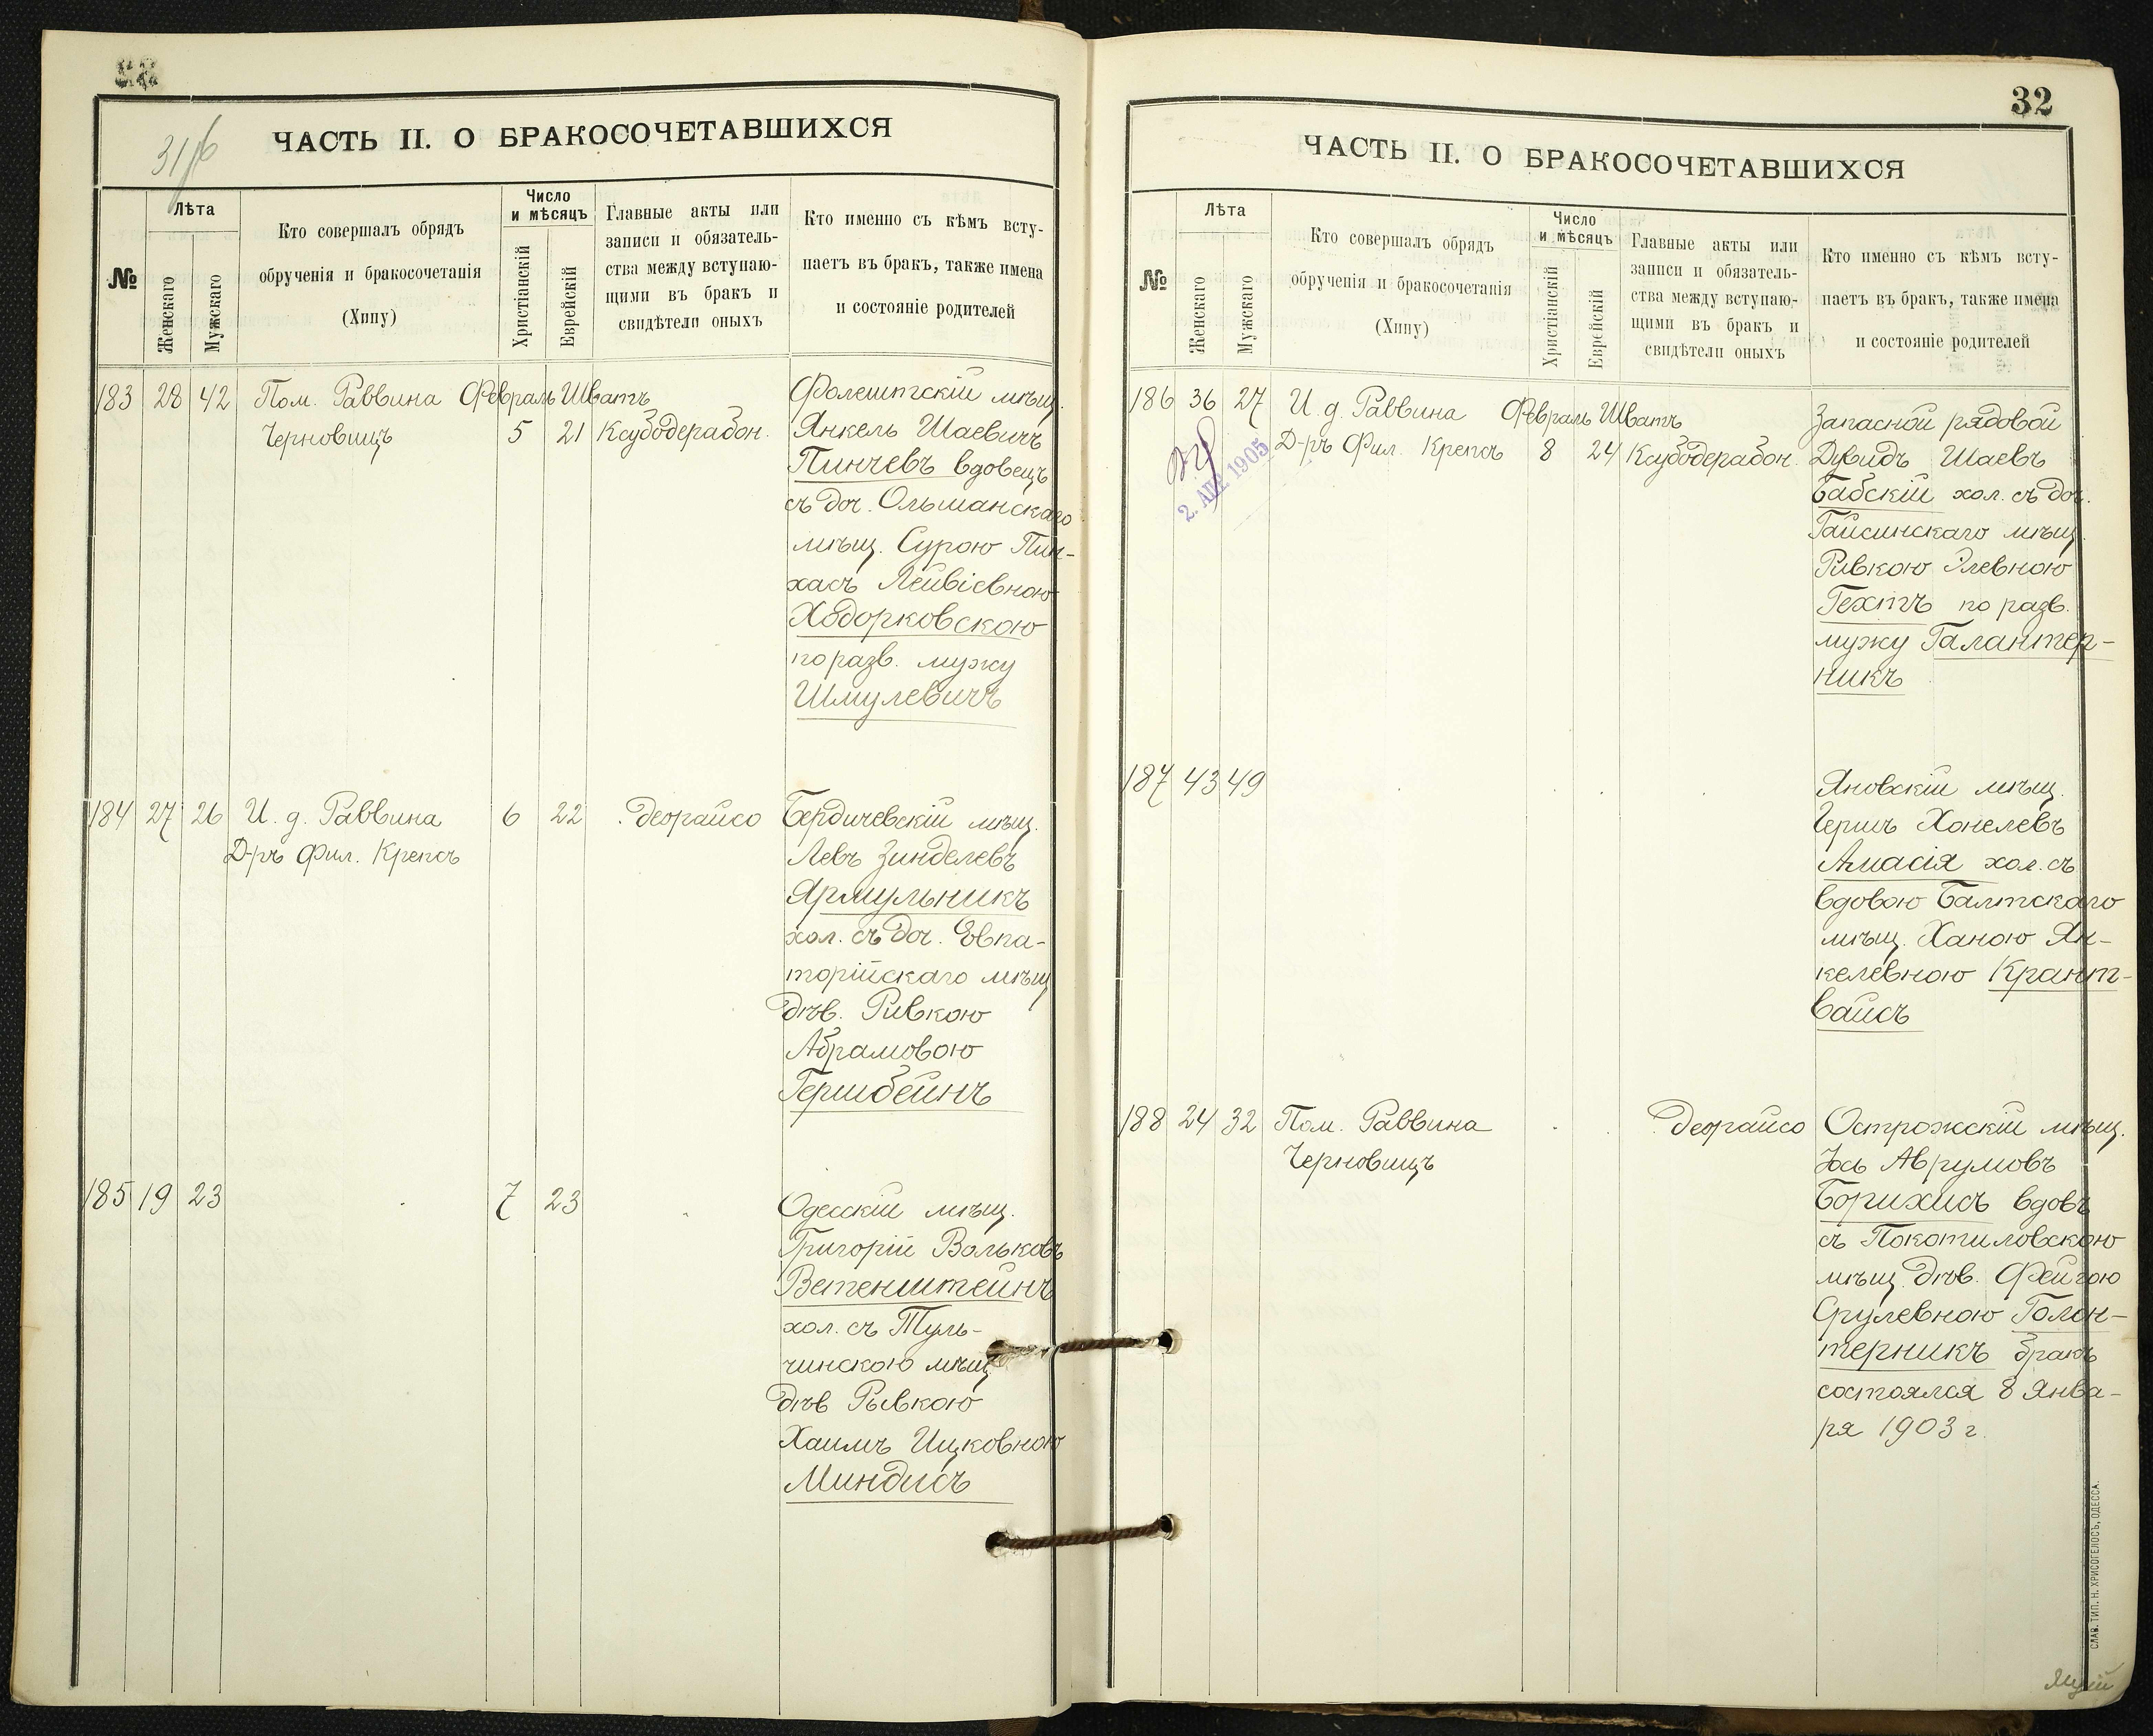 ЧАСТЬ II. О БРАКОСОЧЕТАВШИХСЯ
№
Лѣта
Женскаго
Мужскаго
Кто совершалъ обрядъ
обрученія и бракосочетанія
(Хипу)
Число
и мѣсяцъ
Христіанскій
Еврейскій
Главные акты или
записи и обязатель-
ства между вступаю-
щими въ бракъ и
свидѣтели оныхъ
Кто именно съ кѣмъ всту-
паетъ въ бракъ, также имена
и состояніе родителей
183 28 42 Пом. Раввина Февраль Шватъ
Черновицъ 5 21 Ксубодерабон.
Фолештскій мѣщ.
Янкель Шаевичъ
Пинчевъ вдовецъ
съ доч. Ольшанскаго
мѣщ. Сурою Пин-
хасъ Лейвіевною
Ходорковскою
по разв. мужу
Шмулевичъ
184 27 26 И. д. Раввина 6 22 деорайсо
Д-ръ Фил. Крепсъ
Бердичевскій мѣщ.
Левъ Зинделевъ
Ярмульникъ
хол. съ доч. Евпа-
торійскаго мѣщ
дѣв. Ривкою
Абрамовою
Гершбейнъ
185 19 23 7 23
Одесскій мѣщ.
Григорій Вольковъ
Ветенштейнъ
хол. съ Туль-
чинскою мѣщ
дѣв Рывкою
Хаимъ Ицковною
Миндисъ
32
ЧАСТЬ II. О БРАКОСОЧЕТАВШИХСЯ
№
Лѣта
Женскаго
Мужскаго
Кто совершалъ обрядъ
обрученія и бракосочетанія
(Хипу)
Число
и мѣсяцъ
Христіанскій
Еврейскій
Главные акты или
записи и обязатель-
ства между вступаю-
щими въ бракъ и
свидѣтели оныхъ
Кто именно съ кѣмъ всту-
паетъ въ бракъ, также имена
и состояніе родителей
186 36 27 И. д. Раввина Февраль Шватъ
Д-ръ Фил. Крепсъ 8 24 Ксубодерабон.
2. АПР 1905
Запасной рядовой
Дувидъ Шаевъ
Бабскій хол. съ доч.
Гайсинскаго мѣщ.
Ривкою Илевною
Гехтъ по разв.
мужу Галантер-
никъ
187 43 49
Яновскій мѣщ.
Гершъ Хонелевъ
Амасія хол. съ
вдовою Балтскаго
мѣщ. Ханою Ян-
келевною Крант-
вайсъ
188 24 32 Пом. Раввина деорайсо
Черновицъ
Острожскій мѣщ.
Іось Аврумовъ
Борихисъ вдовъ
съ Покотиловскою
мѣщ. дѣв. Фейгою
Срулевною Голон-
терникъ бракъ
состоялся 8 Янва-
ря 1903 г.
СЛАВ. ТИП. Н. ХРИСОГЕЛОСЪ, ОДЕССА.